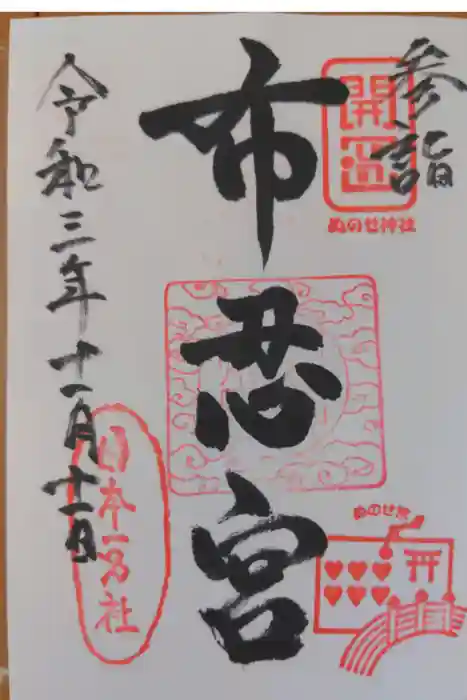 参詣
開運
ぬのせ神社
布忍宮
ぬのせ宮
令和三年十一月十一日
日本一名社